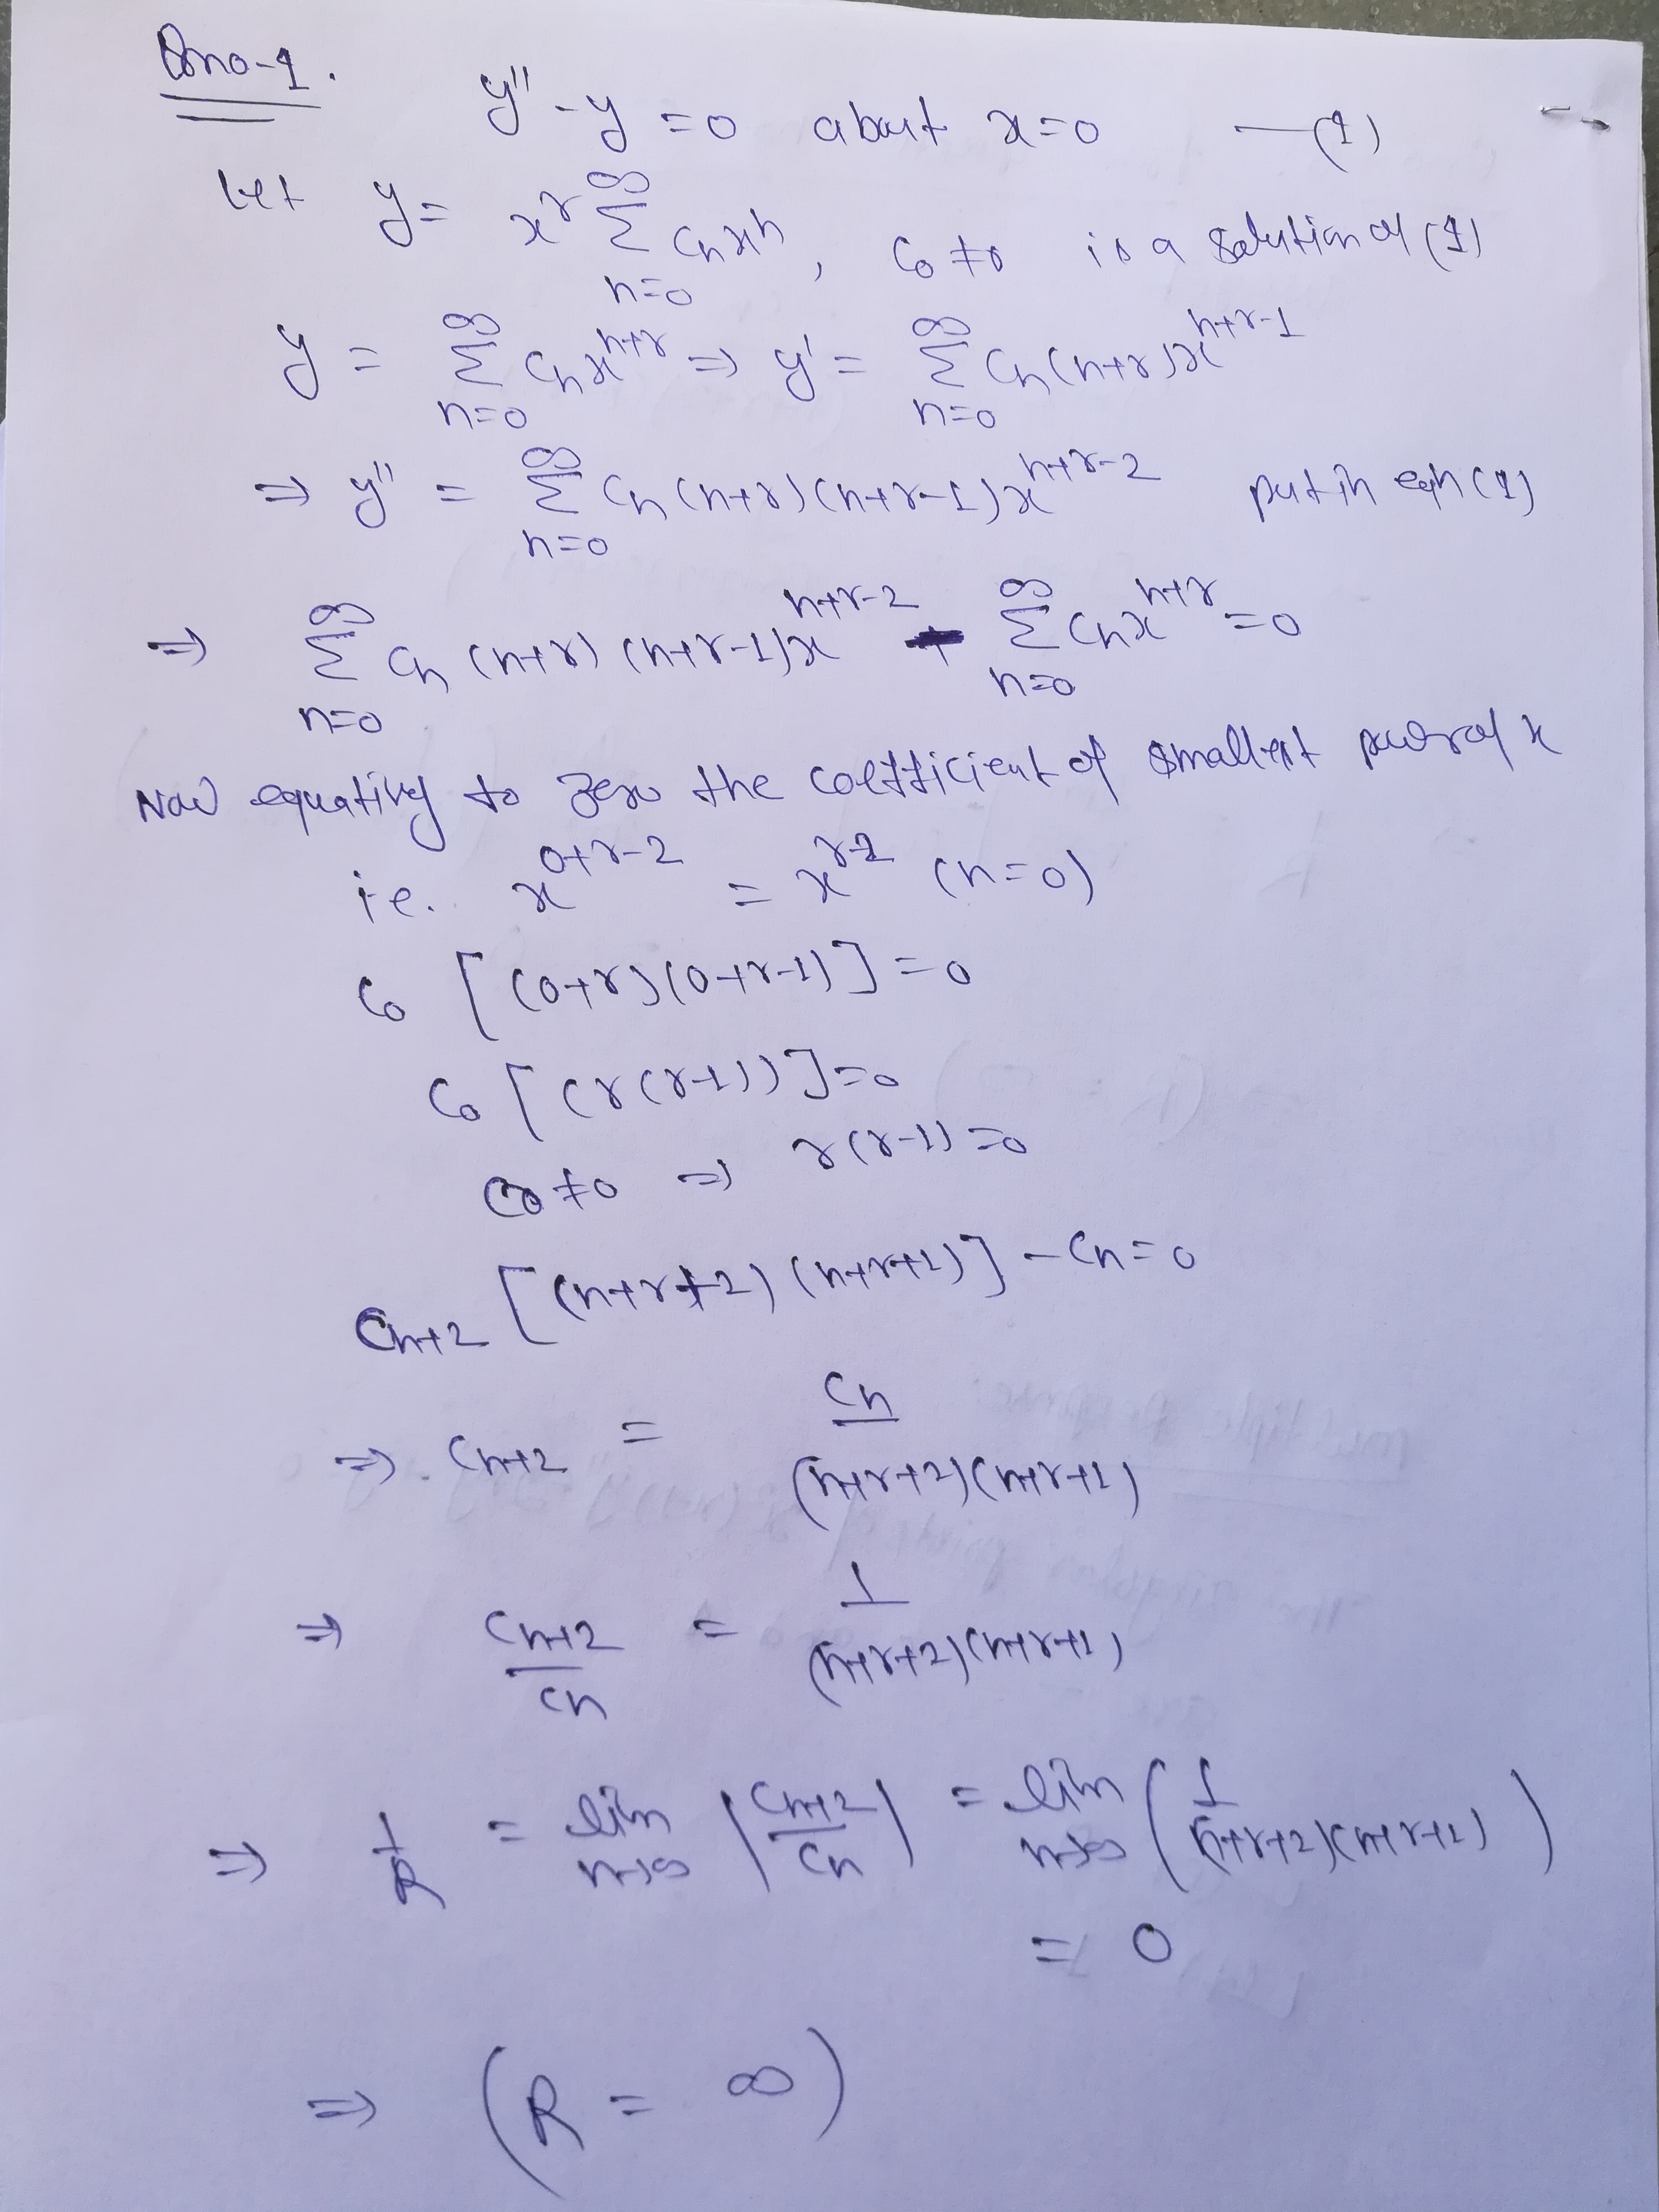 Qno-1.
y'' - y = 0 about x=0 —(1)
Let y = x^r ∑_{n=0}^{∞} Cn x^n, C0 ≠ 0 is a solution of (1)
y = ∑_{n=0}^{∞} Cn x^{n+r} ⇒ y' = ∑_{n=0}^{∞} Cn (n+r) x^{n+r-1}
⇒ y'' = ∑_{n=0}^{∞} Cn (n+r) (n+r-1) x^{n+r-2} put in eqn (1)
⇒ ∑_{n=0}^{∞} Cn (n+r) (n+r-1) x^{n+r-2} - ∑_{n=0}^{∞} Cn x^{n+r} = 0
Now equating to zero the coefficient of smallest power of x
i.e. x^{0+r-2} = x^{r-2} (n=0)
C0 [(0+r)(0+r-1)] = 0
C0 [(r(r-1))] = 0
C0 ≠ 0 ⇒ r(r-1) = 0
Cn+2 [(n+r+2) (n+r+1)] - Cn = 0
⇒ Cn+2 = Cn / (n+r+2)(n+r+1)
⇒ Cn+2 / Cn = 1 / (n+r+2)(n+r+1)
⇒ 1/R = lim_{n→∞} |Cn+2 / Cn| = lim_{n→∞} (1 / (n+r+2)(n+r+1))
= 0
⇒ (R = ∞)